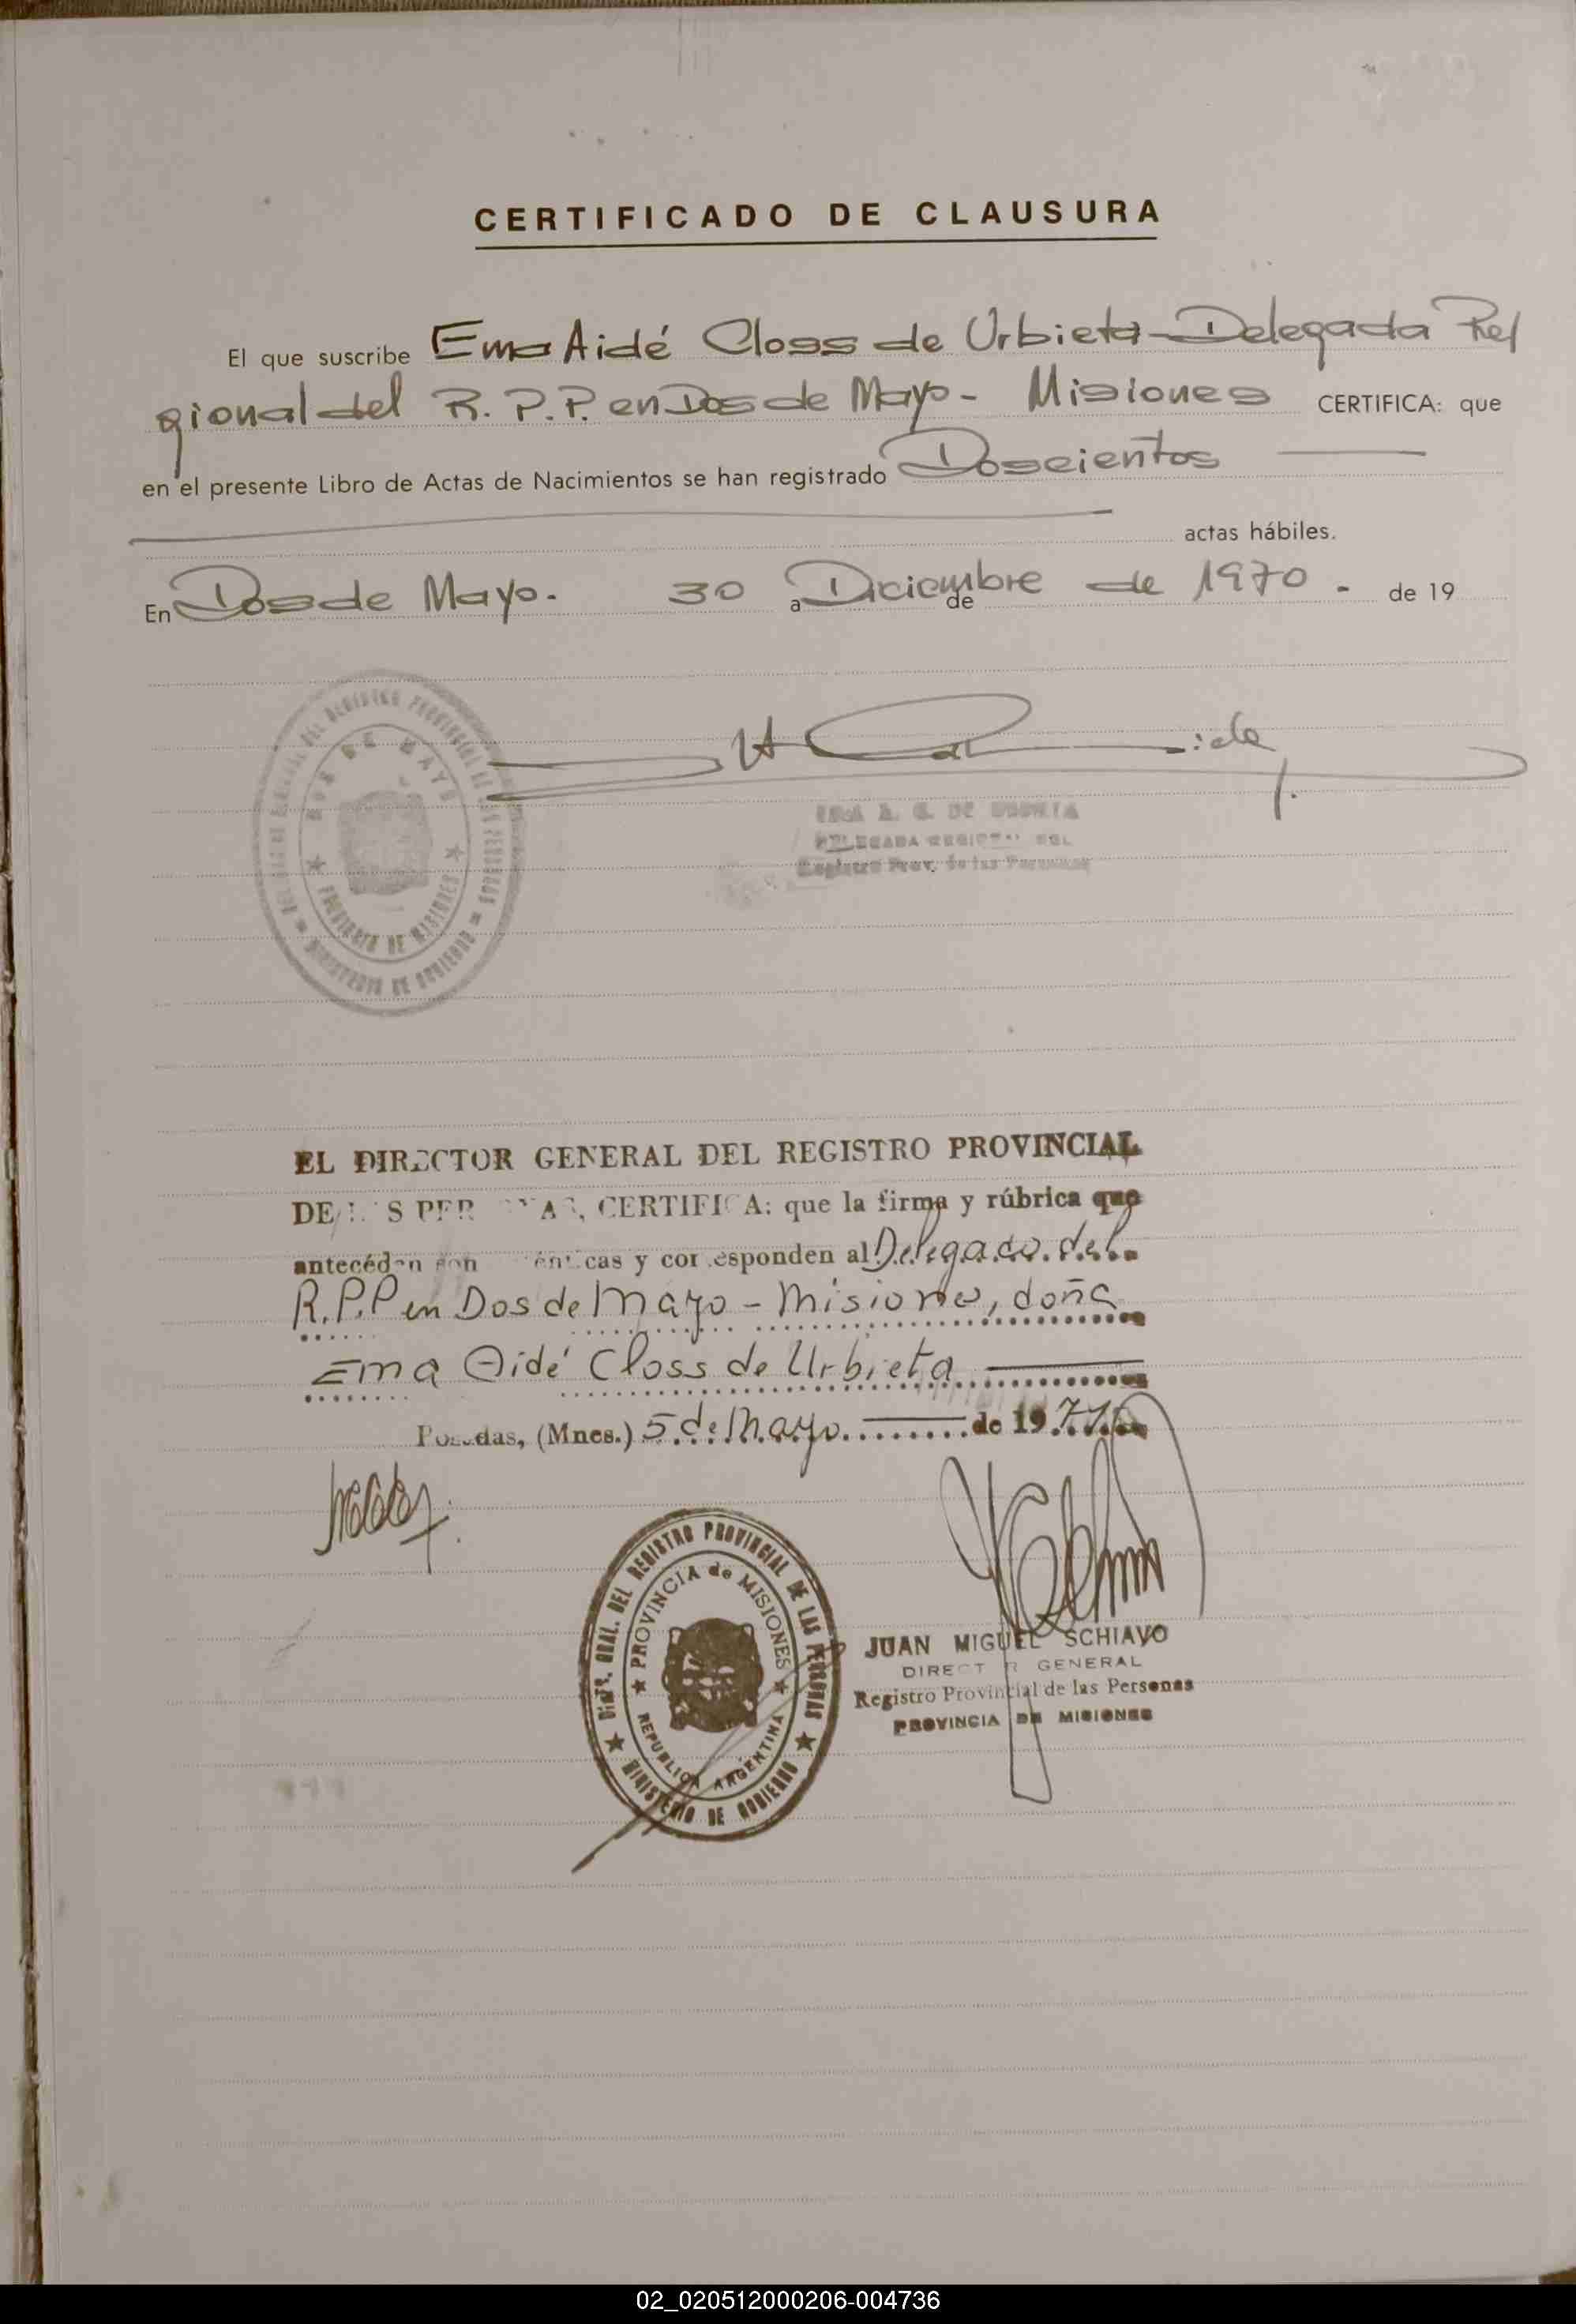 CERTIFICADO DE CLAUSURA
El que suscribe Ema Aidé Closs de Urbieta - Delegada Re/
gional del R. P. P. en Dos de Mayo - Misiones CERTIFICA: que
en el presente Libro de Actas de Nacimientos se han registrado Doscientos
actas hábiles.
En Dos de Mayo. 30 a Diciembre de de 1970. de 19
DOS DE MAYO
PROVINCIA DE MISIONES
MINISTERIO DE GOBIERNO
DELEGADA
Registro Prov. de las Personas
EL DIRECTOR GENERAL DEL REGISTRO PROVINCIAL
DE CERTIFICA: que la firma y rúbrica que
y corresponden al Delegado del
R.P.P en Dos de Mayo - Misiones, doña
Ema Aidé Closs de Urbieta
Posadas, (Mnes.) 5 de Mayo de 1971
DEL REGISTRO PROVINCIAL DE LAS PERSONAS
PROVINCIA de MISIONES
REPUBLICA ARGENTINA
MINISTERIO DE GOBIERNO
JUAN MIGUEL SCHIAVO
DIRECTOR GENERAL
Registro Provincial de las Personas
PROVINCIA DE MISIONES
02_020512000206-004736